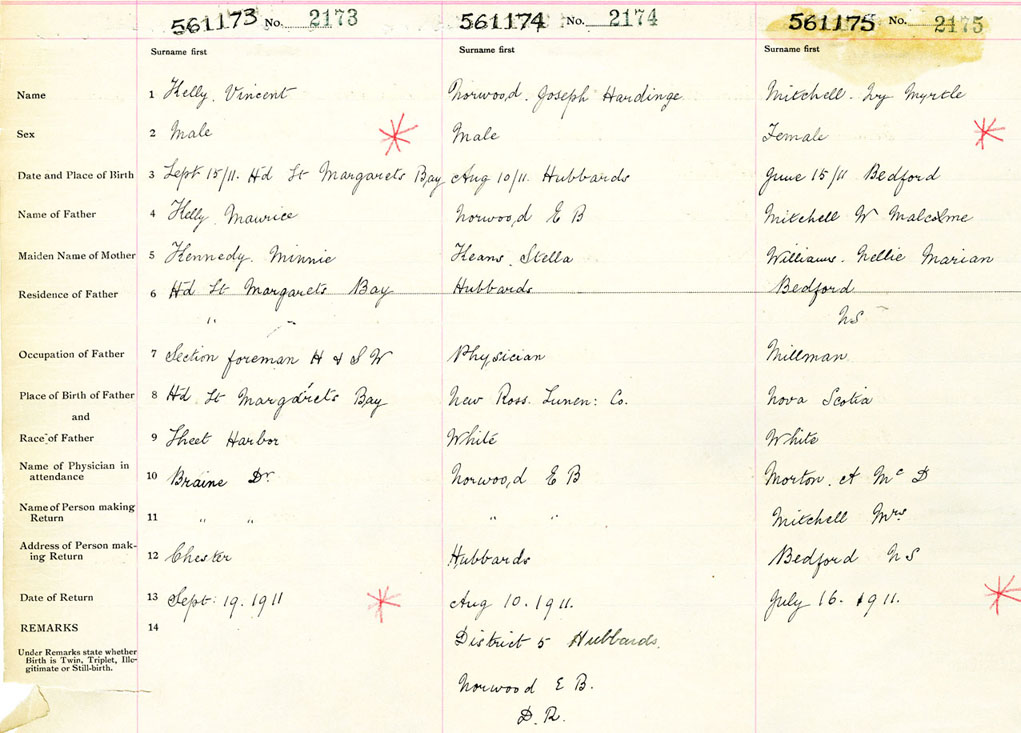 561173 No. 2173 561174 No. 2174 561175 No. 2175
Surname first Surname first Surname first
Name 1 Kelly, Vincent Norwood, Joseph Hardinge Mitchell. Ivy Myrtle
Sex 2 Male Male Female
Date and Place of Birth 3 Sept 15/11. Hd St Margarets Bay Aug 10/11. Hubbards June 15/11 Bedford
Name of Father 4 Kelly, Maurice Norwood E B Mitchell W Malcolme
Maiden Name of Mother 5 Kennedy. Minnie Keans, Stella Williams. Nellie Marian
Residence of Father 6 Hd St Margarets Bay Hubbards Bedford
" " NS
Occupation of Father 7 Section foreman H & S W Physician Millman
Place of Birth of Father 8 Hd St Margarets Bay New Ross. Lunen: Co. Nova Scotia
and
Race of Father 9 Sheet Harbor White White
Name of Physician in
attendance 10 Braine Dr Norwood E B Morton. A Mc D
Name of Person making
Return 11 " " " " Mitchell Mrs
Address of Person mak-
ing Return 12 Chester Hubbards Bedford NS
Date of Return 13 Sept: 19. 1911 Aug 10. 1911. July 16. 1911.
REMARKS 14
District 5 Hubbards.
Under Remarks state whether
Birth is Twin, Triplet, Ille-
gitimate or Still-birth.
Norwood E B.
D. R.